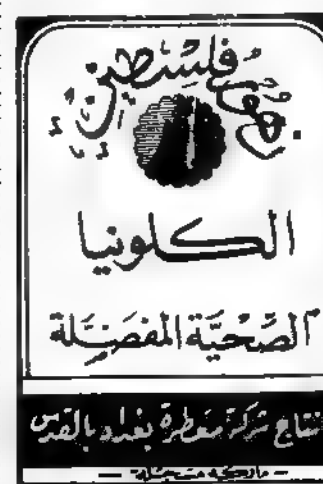 زهور فلسطين
الكلونيا
الصحيّة المفضّلة
نتاج شركة معطرة بغداد بالقدس
— ماركة مسجلة —